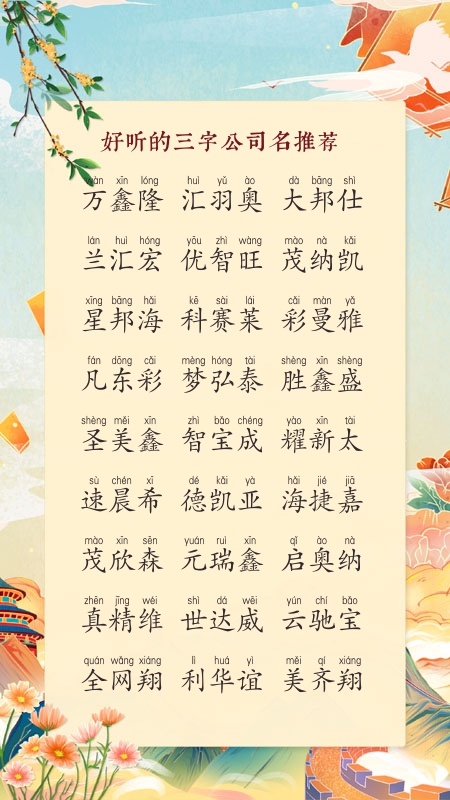 好听的三字公司名推荐
wàn xīn lóng huì yǔ ào dà bāng shì
万鑫隆 汇羽奥 大邦仕
lán huì hóng yōu zhì wàng mào nà kǎi
兰汇宏 优智旺 茂纳凯
xīng bāng hǎi kē sài lái cǎi màn yǎ
星邦海 科赛莱 彩曼雅
fán dōng cǎi mèng hóng tài shèng xīn shèng
凡东彩 梦弘泰 胜鑫盛
shèng měi xīn zhì bǎo chéng yào xīn tài
圣美鑫 智宝成 耀新太
sù chén xī dé kǎi yà hǎi jié jiā
速晨希 德凯亚 海捷嘉
mào xīn sēn yuán ruì xīn qǐ ào nà
茂欣森 元瑞鑫 启奥纳
zhēn jīng wéi shì dá wēi yún chí bǎo
真精维 世达威 云驰宝
quán wǎng xiáng lì huá yì měi qí xiáng
全网翔 利华谊 美齐翔